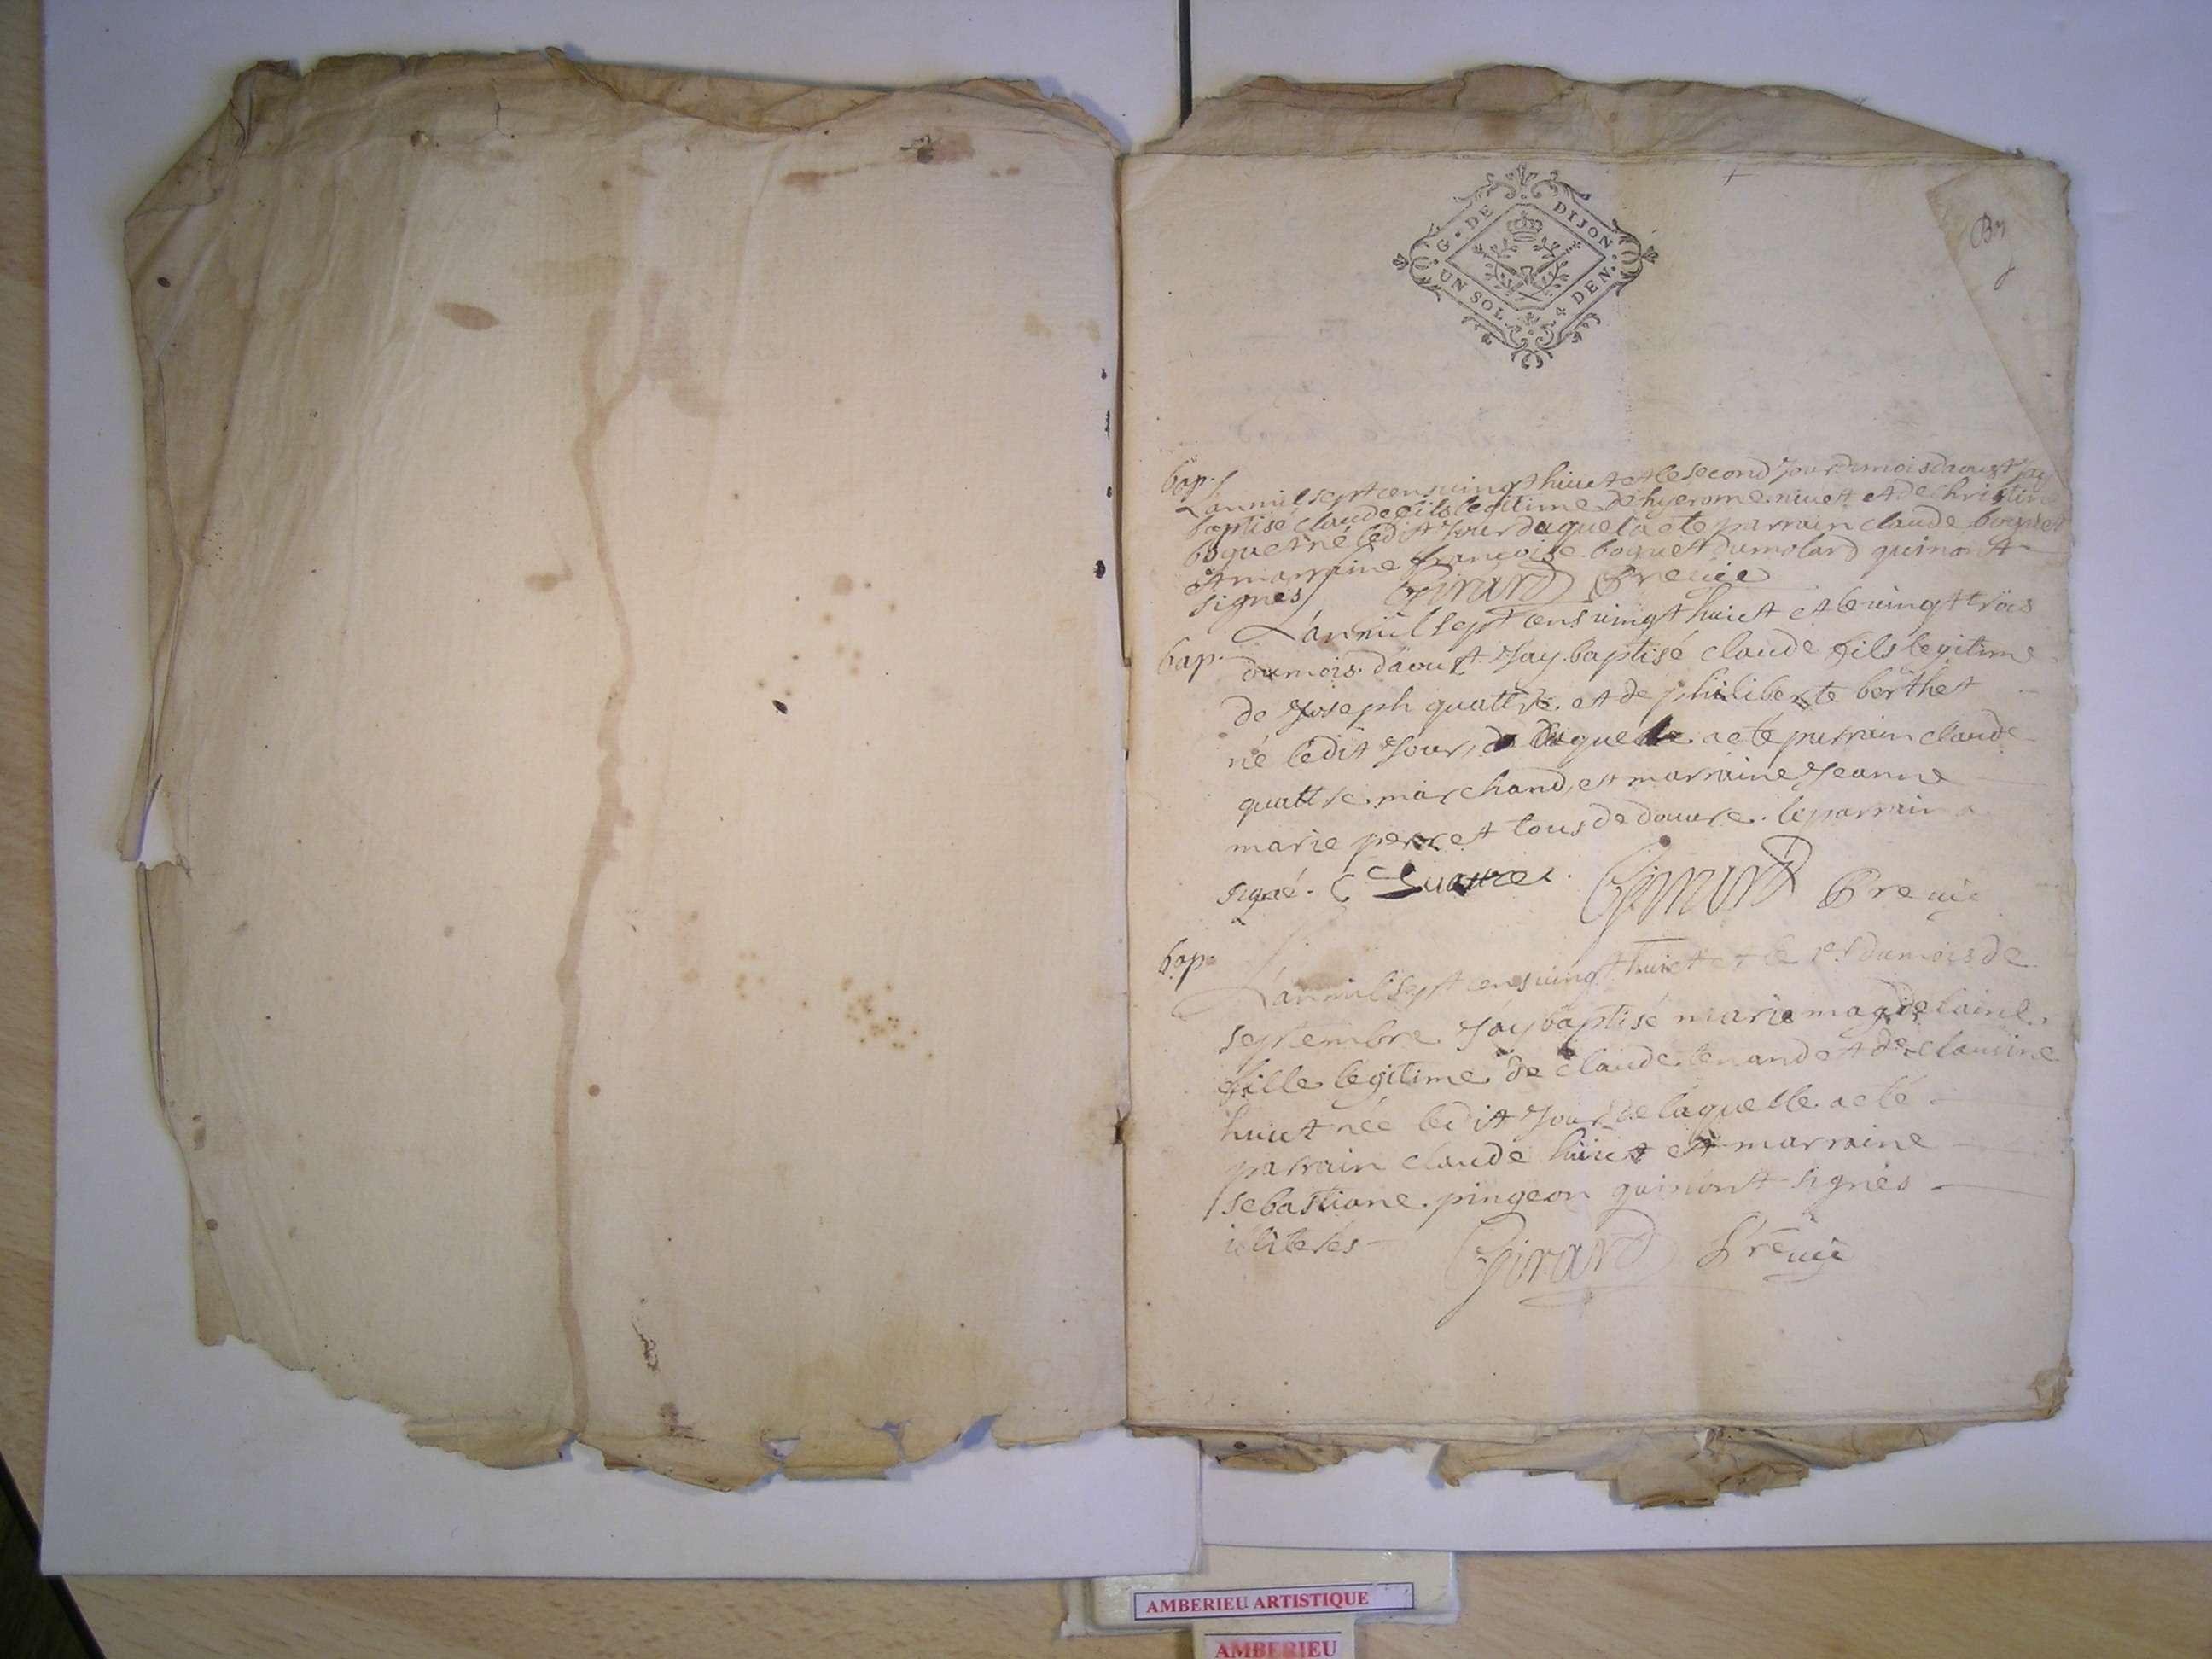 G. DE DIJON
UN SOL 4 DEN.
bap. L'an mil sept cens vingt huict et le second Jour du mois daoust Jay
baptisé claude fils legitime de hyerome niuet et de christine
boguet né ledit Jour duquel a eté parrain claude boguet
et marraine françoise boguet du molard qui nont
signés Girard Preuie
L'an mil sept cens vingt huict et le vingt trois
bap. du mois daoust Jay baptisé claude fils legitime
de Joseph quattre et de philiberte berthet
né ledit Jour, a eté parrain claude
quattre marchand, et marraine Jeanne
marie perret tous de douure. le parrain a
signé. C Girard Preuie
bap. L'an mil sept cens vingt huict et le 1er du mois de
septembre Jay baptisé marie magdelaine
fille legitime de claude tenand et de claudine
huict née ledit Jour de laquelle a eté
parrain claude huict et marraine
sebastiane pingeon qui nont signés
illiterés Girard Preuie
AMBERIEU ARTISTIQUE
AMBERIEU